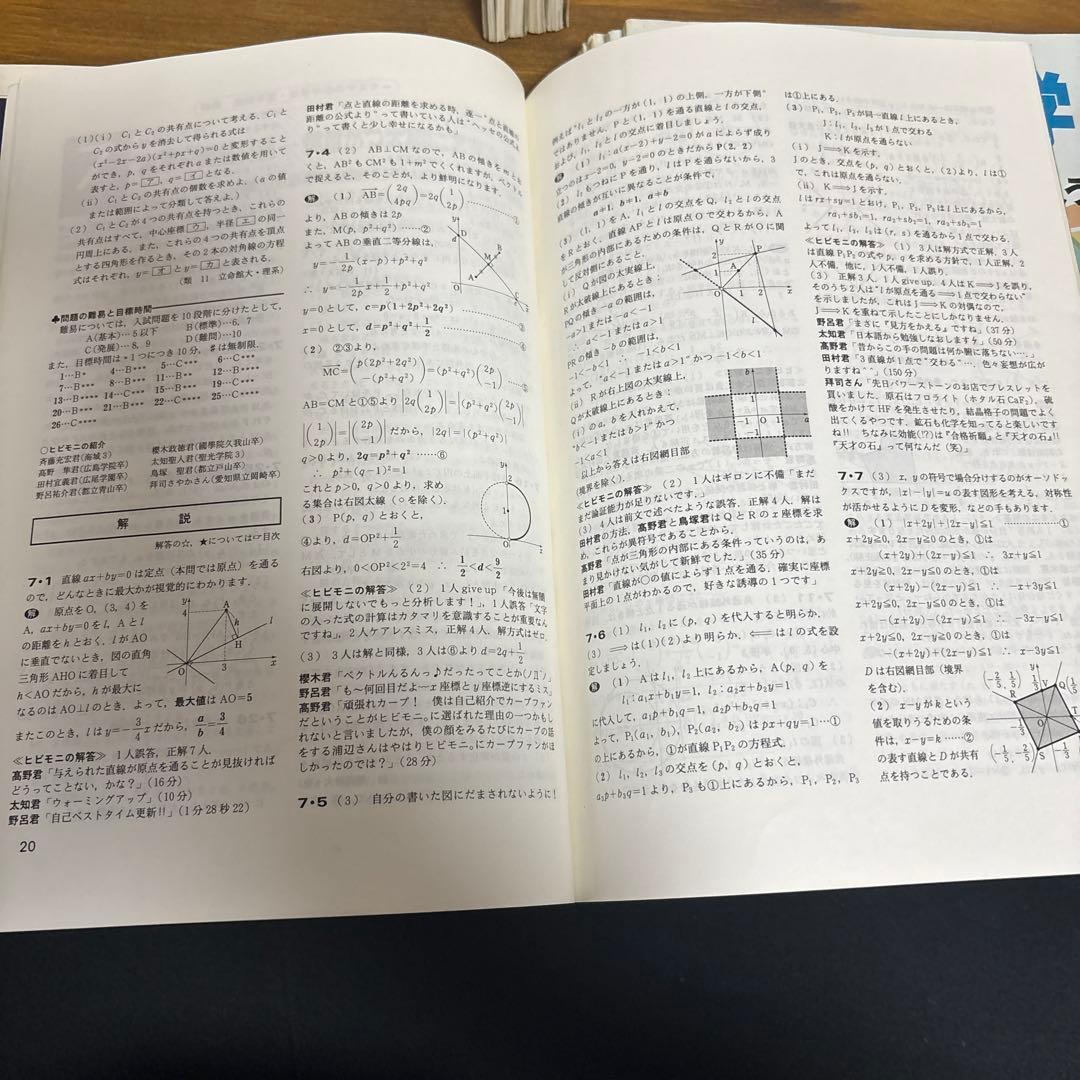 (1)(i) C₁とC₂の共有点について考える．C₁と
C₂の式からyを消去して得られる式は
(x²−2x−2a)(x²+px+q)=0と変形すること
ができ，p，qをそれぞれaまたは数値を用いて
表すと，p=ア，q=イとなる．
(ii) C₁とC₂の共有点の個数を求めよ．(aの値
または範囲によって分類して答えよ．)
(2) C₁とC₂が4つの共有点を持つとき，これらの
共有点はすべて，中心座標ウ，半径エの同一
円周上にある．また，これらの4つの共有点を頂点
とする四角形を作るとき，その2本の対角線の方程
式はそれぞれ，y=オとy=カと表される．
(類 11 立命館大・理系)
♣問題の難易と目標時間
難易については，入試問題を10段階に分けたとして，
A(基本)…5以下 B(標準)…6，7
C(発展)…8，9 D(難問)…10
また，目標時間は＊1つにつき10分，♯は無制限．
1…B＊ 4…B＊＊ 5…C＊＊＊ 6…C＊＊＊
7…B＊＊＊ 8…B＊＊＊ 11…B＊＊ 12…B＊＊＊＊
13…B＊＊＊＊ 14…C＊＊＊ 15…B＊＊＊ 19…C＊＊＊
20…B＊＊＊ 21…B＊＊＊ 22…C＊＊＊＊ 25…C＊＊＊
26…C＊＊＊＊
○ヒビモニの紹介
斉藤充宏君(海城3) 櫻木政徳君(國學院久我山卒)
高野 隼君(広島学院卒) 太知聖人君(聖光学院3)
田村宜義君(広尾学園卒) 鳥塚 聖君(都立戸山卒)
野呂祐介君(都立青山卒) 拜司さやかさん(愛知県立岡崎卒)
解 説
解答の☆，★については☞目次
7・1 直線ax+by=0は定点(本問では原点)を通る
ので，どんなときに最大かが視覚的にわかります．
解 原点をO，(3，4)を
A，ax+by=0をl，Aとl
の距離をhとおく．lがAO
に垂直でないとき，図の直角
三角形AHOに着目して
h<AOだから，hが最大に
なるのはAO⊥lのとき，よって，最大値はAO=5
またこのとき，lはy=−3/4 xだから，a/b=3/4
≪ヒビモニの解答≫ 1人誤答，正解7人．
高野君「与えられた直線が原点を通ることが見抜ければ
どうってことない，かな？」(16分)
太知君「ウォーミングアップ」(10分)
野呂君「自己ベストタイム更新!!」(1分28秒22)
20
田村君「点と直線の距離を求める時，逐一"点と直線の
距離の公式より"って書いている人は"ヘッセの公式よ
り"って書くと少し幸せになるかも」
7・4 (2) AB⊥CMなので，ABの傾きをmとお
くと，AB²もCM²も1+m²でくくれますが，ベクトル
で捉えると，そのことが，より鮮明になります．
解 (1) AB=(2q 4pq)=2q(1 2p) ……①
より，ABの傾きは2p
また，M(p, p²+q²) ……②
よってABの垂直二等分線は，
y=−1/2p(x−p)+p²+q²
∴ y=−1/2p x+1/2+p²+q²
y=0として，c=p(1+2p²+2q²)
x=0として，d=p²+q²+1/2
(2) ②③より，
MC=(p(2p²+2q²) −(p²+q²))=(p²+q²)(2p −1) ……⑤
AB=CMと①⑤より|2q(1 2p)|=|(p²+q²)(2p −1)|
|(1 2p)|=|(2p −1)|だから，|2q|=|(p²+q²)|
q>0より，2q=p²+q² ……⑥
∴ p²+(q−1)²=1
これとp>0，q>0より，求め
る集合は右図太線(○を除く)．
(3) P(p, q)とおくと，
④より，d=OP²+1/2
右図より，0<OP²<2²=4 ∴ 1/2<d<9/2
≪ヒビモニの解答≫ (2) 1人give up「今後は無闇
に展開しないでもっと分析します！」，1人誤答「文字
の入った式の計算はカタマリを意識することが重要なん
ですね」，2人ケアレスミス，正解4人，解方式はゼロ．
(3) 3人は解と同様，3人は⑥よりd=2q+1/2
櫻木君「ベクトルんるんっ♪だったってことか(ノД`)ノ」
野呂君「も〜何回目だよ…x座標とy座標逆にするミス」
高野君「頑張れカープ！ 僕は自己紹介でカープファン
だということがヒビモニ。に選ばれた理由の一つかもし
れないと言いましたが，僕の顔をみるたびにカープの話
をする浦辺さんはやはりヒビモニ。にカープファンがほ
しかったのでは？」(28分)
7・5 (3) 自分の書いた図にだまされないように！
例えば"l₁とl₂の一方が(1, 1)の上側，一方が下側"
ではありません．Pと(1, 1)を通る直線とlの交点，
および，l₁，l₂，l₃とlの交点に着目しましょう．
解 (1) l₁：a(x−2)+y−2=0がaによらず成り
立つのはx−2=0，y−2=0のときだからP(2, 2)
(2) l₂もl₃もつねにPを通り，lはPを通らないから，3
直線の傾きが互いに異なることが条件で，
a≠1，b≠1，a≠b
(3) (1, 1)をA，l₁とlの交点をQ，l₂とlの交点
をRとおく．直線APとlは原点Oで交わるから，A
が三角形の内部にあるための条件は，QとRがOに関
して反対側にあること．
(i) Qが図の太実線上，
Rが太破線上にあるとき：
PQの傾き−aの範囲は，
−a>1または−a<−1
∴ a<−1またはa>1
PRの傾き−bの範囲は，
−1<−b<1 ∴ −1<b<1
よって，"a<−1またはa>1"かつ−1<b<1
(ii) Rが右上図の太実線上，
Qが太破線上にあるとき：
(i)のa，bを入れかえて，
"b<−1またはb>1"かつ
−1<a<1
以上から答えは右図網目部
(境界を除く)．
≪ヒビモニの解答≫ (2) 1人はギロンに不備「まだ
まだ論証能力が足りないです．」
(3) 4人は前文で述べたような誤答．正解4人，解は
田村君の方法．高野君と鳥塚君はQとRのx座標を求
め，これらが異符号であることから．
高野君「点が三角形の内部にある条件っていうのは，あ
まり見かけない気がして新鮮でした．」(35分)
田村君「直線が○の値によらず1点を通る．確実に座標
平面上の1点がわかるので，好きな誘導の1つです」
7・6 (1) l₁，l₂に(p, q)を代入すると明らか．
(3) ⟹は(1)(2)より明らか．⟸はlの式を設
定しましょう．
解 (1) Aはl₁，l₂上にあるから，A(p, q)を
l₁：a₁x+b₁y=1，l₂：a₂x+b₂y=1
に代入して，a₁p+b₁q=1，a₂p+b₂q=1
よって，P₁(a₁, b₁)，P₂(a₂, b₂)はpx+qy=1…①
の上にあるから，①が直線P₁P₂の方程式．
(2) l₁，l₂，l₃の交点を(p, q)とおくと，
a₃p+b₃q=1より，P₃も①上にあるから，P₁，P₂，P₃
は①上にある．
(3) P₁，P₂，P₃が同一直線l上にあるとき，
J：l₁，l₂，l₃が1点で交わる
K：lが原点を通らない
(i) J⟹Kを示す．
Jのとき，交点を(p, q)とおくと，(2)より，lは①
で，これは原点を通らない．
(ii) K⟹Jを示す．
lはrx+sy=1とおけ，P₁，P₂，P₃はl上にあるから，
ra₁+sb₁=1，ra₂+sb₂=1，ra₃+sb₃=1
よってl₁，l₂，l₃は(r, s)を通るから1点で交わる．
≪ヒビモニの解答≫ (1) 3人は解方式で正解，3人
は直線P₁P₂の式やp，qを求める方針で，1人正解，2
人不備，他に，1人不備，1人誤り．
(3) 正解3人，1人give up．4人はK⟹Jを誤り，
そのうち2人は"lが原点を通る⟹1点で交わらない"
を示しましたが，これはJ⟹Kの対偶なので，
J⟹Kを重ねて示したことにしかなりません．
野呂君「まさに『見方をかえる』ですね」(37分)
太知君「日本語から勉強しなおします」(50分)
高野君「昔からこの手の問題は何か腑に落ちない…．」
田村君「3直線が1点で"交わる"…．色々妄想が広が
りますね^^」(150分)
拜司さん「先日パワーストーンのお店でブレスレットを
買いました．原石はフロライト(ホタル石CaF₂)．硫
酸をかけてHFを発生させたり，結晶格子の問題でよく
出てくるやつです．鉱石も化学を知ってると楽しいです
ね!! ちなみに効能(!?)は『合格祈願』と『天才の石』!!
『天才の石』って何なんだ(笑)」
7・7 (3) x，yの符号で場合分けするのがオーソド
ックスですが，|x|−|y|=uの表す図形を考える．対称性
が活かせるようにDを変形，などの手もあります．
解 (1) |x+2y|+|2x−y|≦1 ……①
x+2y≧0，2x−y≧0のとき，①は
(x+2y)+(2x−y)≦1 ∴ 3x+y≦1
x+2y≧0，2x−y≦0のとき，①は
(x+2y)−(2x−y)≦1 ∴ −x+3y≦1
x+2y≦0，2x−y≦0のとき，①は
−(x+2y)−(2x−y)≦1 ∴ −3x−y≦1
x+2y≦0，2x−y≧0のとき，①は
−(x+2y)+(2x−y)≦1 ∴ x−3y≦1
Dは右図網目部(境界
を含む)．
(2) x−yがkという
値を取りうるための条
件は，x−y=k ……②
の表す直線とDが共有
点を持つことである．